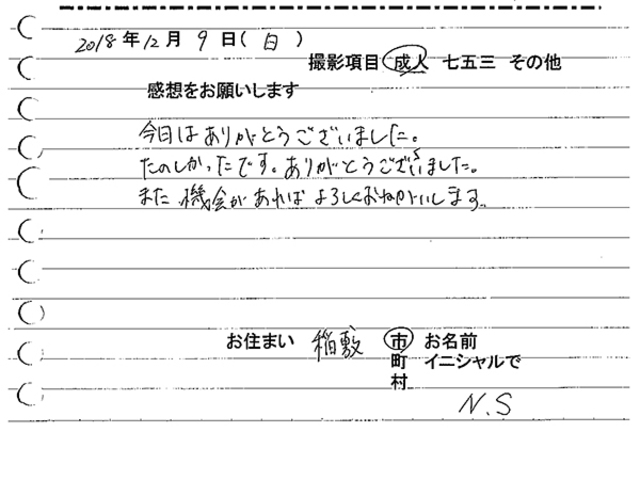 2018年12月9日(日)
撮影項目 成人 七五三 その他
感想をお願いします
今日はありがとうございました。
たのしかったです。ありがとうございました。
また機会があればよろしくおねがいします。
お住まい 稲敷 市 お名前
町 イニシャルで
村
N.S